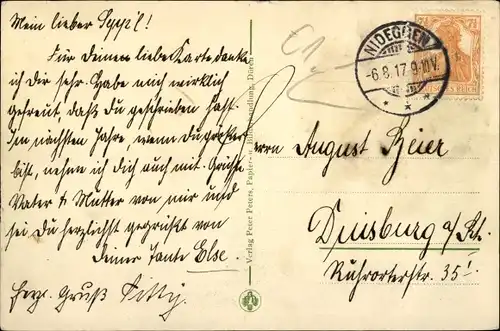 Mein lieber
Für Deine liebe Karte danke
ich Dir sehr. Habe mich wirklich
gefreut, daß Du geschrieben hast.
Im nächsten Jahre, wenn Du größer
bist, nehme ich Dich auch mit. Grüße
Vater & Mutter von mir und
sei Du herzlichst gegrüßt von
Deiner Tante Else.
Herzl. Gruß
Verlag Peter Peters, Papier- u. Buchhandlung, Düren
NIDEGGEN
-6.8.17.9-10V.
7½ 7½
Herrn August Heier
Duisburg a/Rh.
Ruhrorterstr. 35I